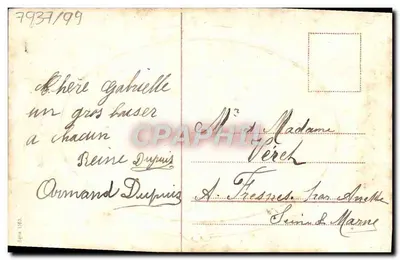 7937/99
Chère Gabrielle
un gros baiser
a chacun
Reine Dupuis
Armand Dupuis
Mr et Madame
Véret
A. Fresnes par
Seine & Marne
CPAPHIL